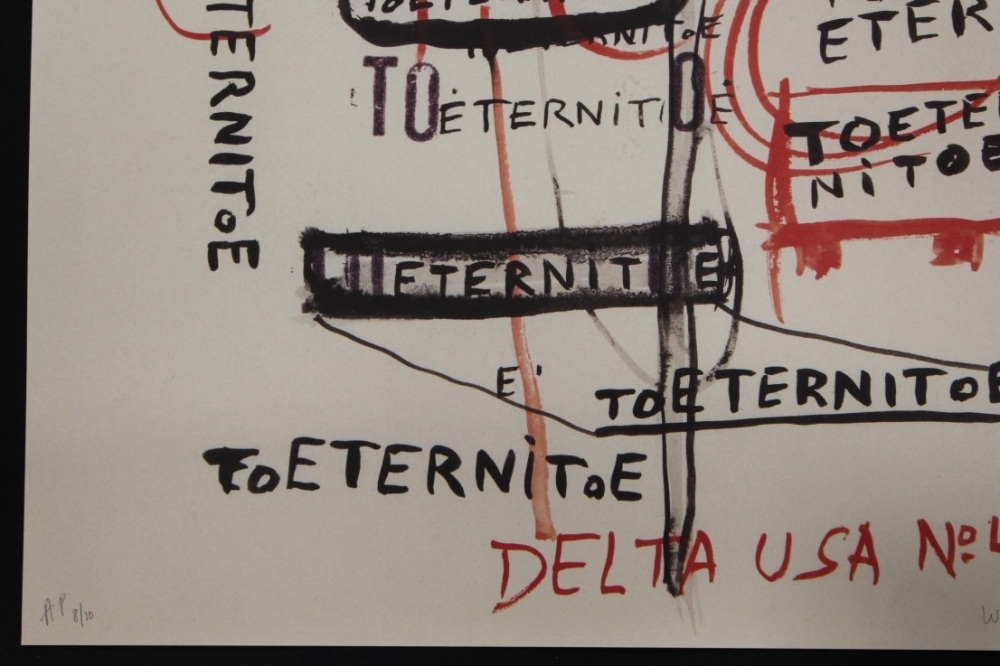 TOETERNITOE
ETER
TOĖTERNITIOĖ
TOETE
NiTOE
TERNIToE
ETERNIT E
E'
TOETERNITOE
TOETERNiToE
DELTA USA Nº
AP 8/10
W